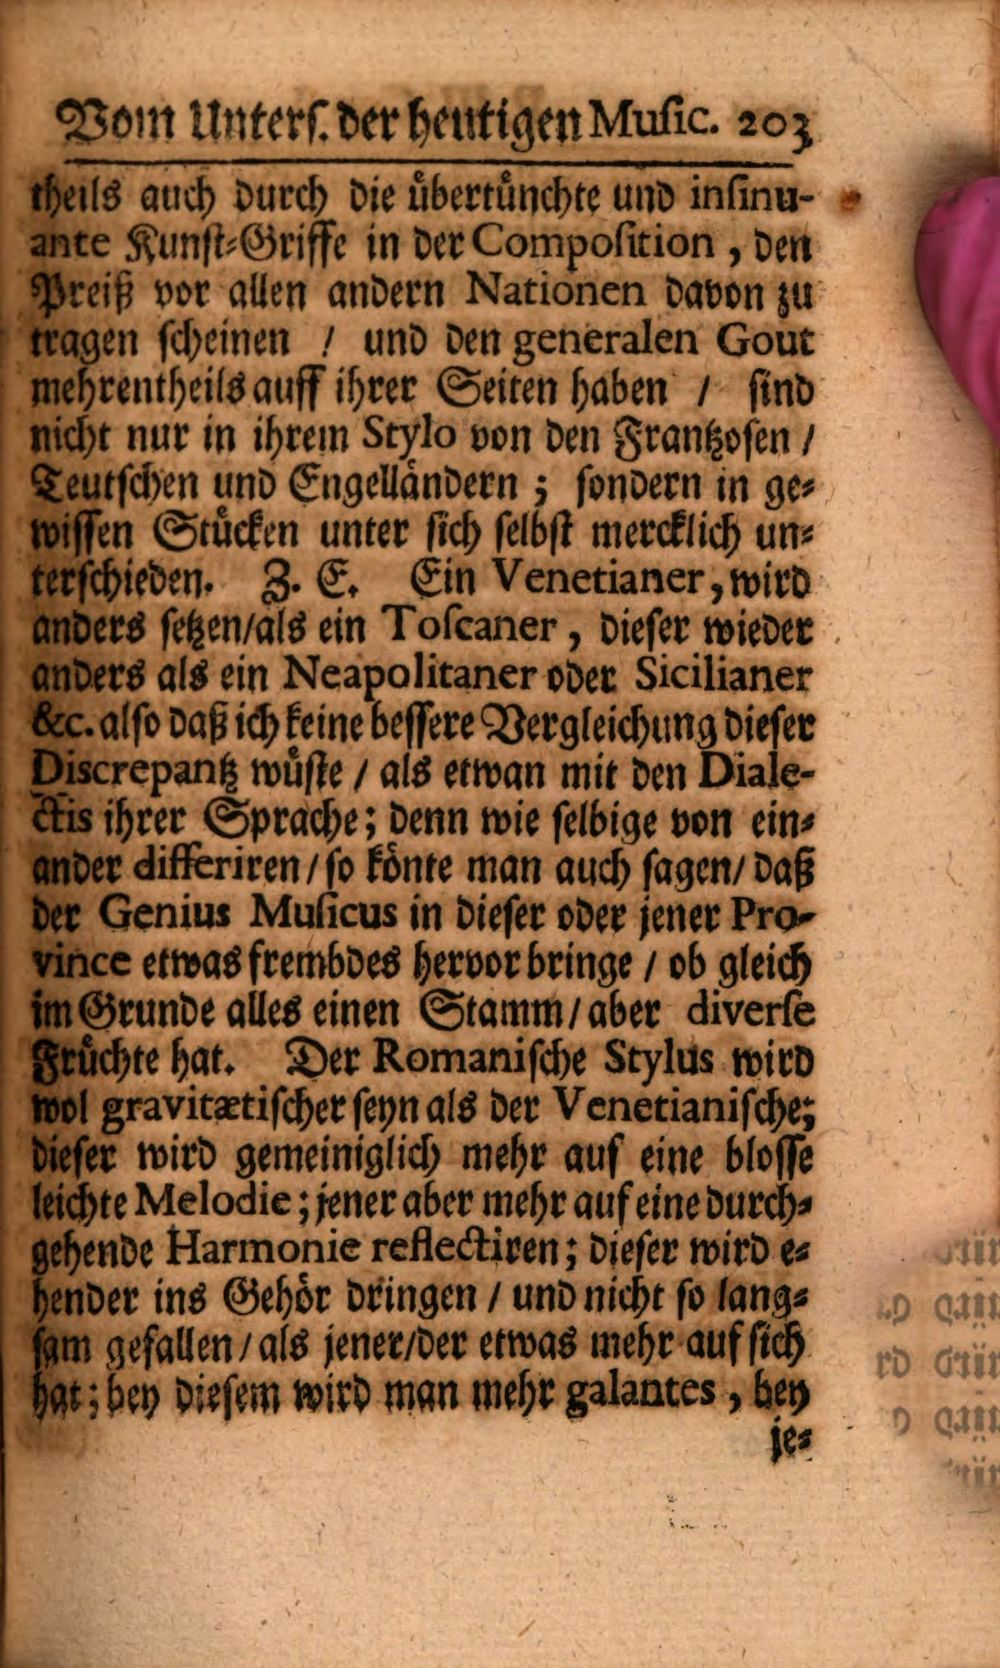 Vom Unters. der heutigen Music. 203
theils auch durch die uͤbertuͤnchte und insinu-
ante Kunst-Griffe in der Composition, den
Preiß vor allen andern Nationen davon zu
tragen scheinen / und den generalen Gout
mehrentheils auff ihrer Seiten haben / sind
nicht nur in ihrem Stylo von den Frantzosen /
Teutschen und Engellaͤndern; sondern in ge-
wissen Stuͤcken unter sich selbst mercklich un-
terschieden. Z. E. Ein Venetianer, wird
anders setzen/als ein Toscaner, dieser wieder
anders als ein Neapolitaner oder Sicilianer
&c. also daß ich keine bessere Vergleichung dieser
Discrepantz wuͤste / als etwan mit den Diale-
ctis ihrer Sprache; denn wie selbige von ein-
ander differiren / so koͤnte man auch sagen/ daß
der Genius Musicus in dieser oder jener Pro-
vince etwas frembdes hervor bringe / ob gleich
im Grunde alles einen Stamm/ aber diverse
Fruͤchte hat. Der Romanische Stylus wird
wol gravitætischer seyn als der Venetianische;
dieser wird gemeiniglich mehr auf eine blosse
leichte Melodie; jener aber mehr auf eine durch-
gehende Harmonie reflectiren; dieser wird e-
hender ins Gehoͤr dringen / und nicht so lang-
sam gefallen / als jener/der etwas mehr auf sich
hat; bey diesem wird man mehr galantes, bey
je-